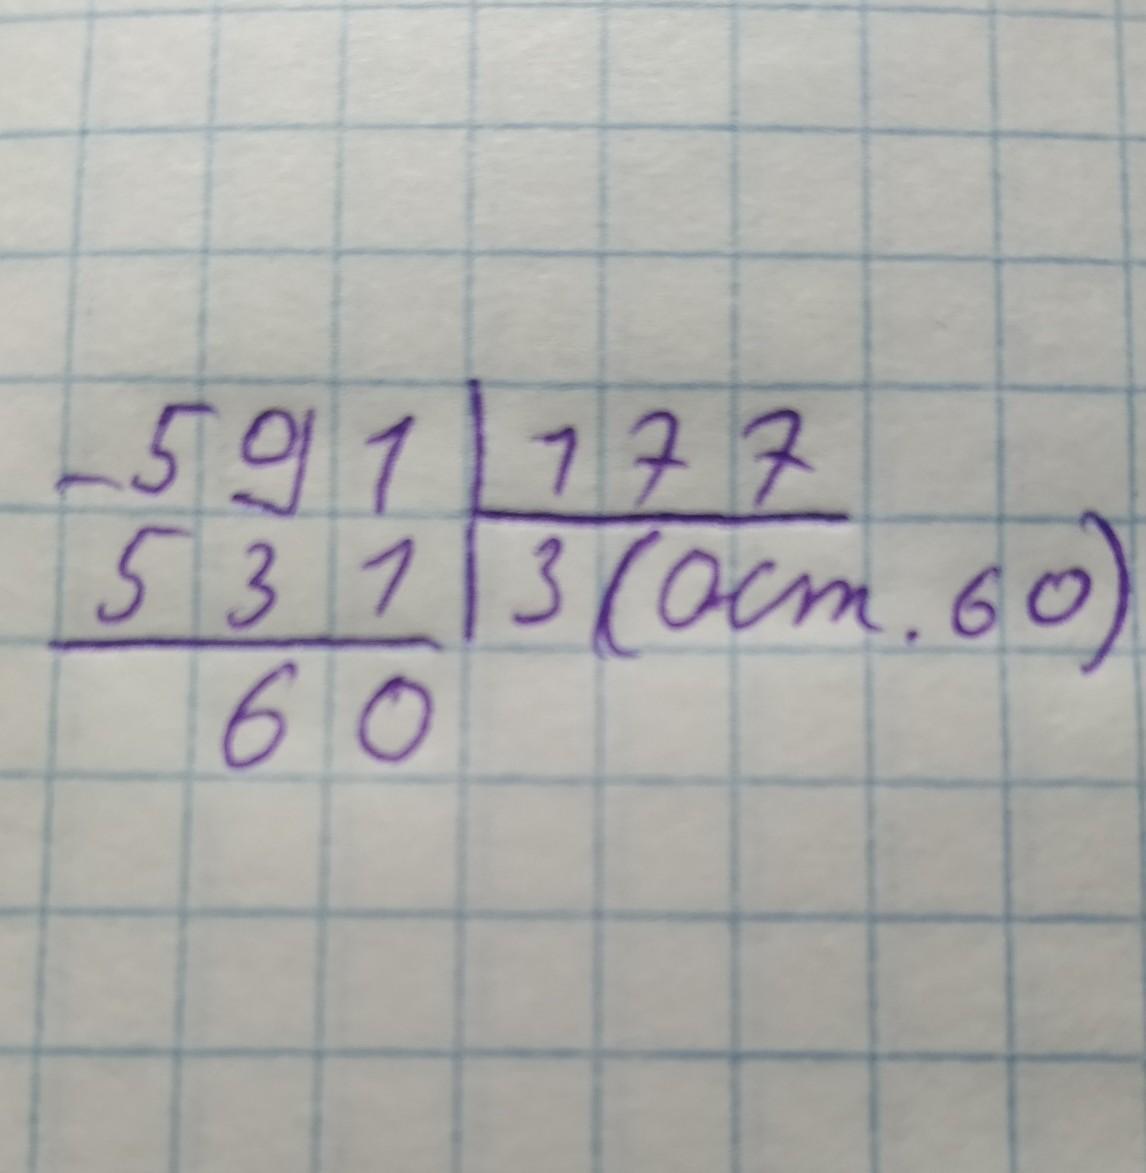 -591|177
531|3(Ост. 60)
60